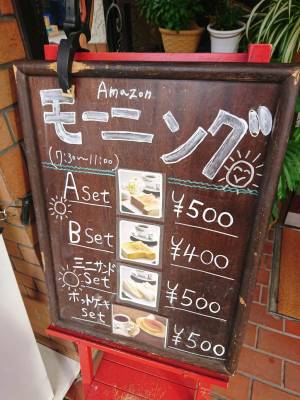 Amazon
モーニング
(7:30~11:00)
A set ¥500
B set ¥400
ミニサンド
set ¥500
ホットケーキ
set ¥500